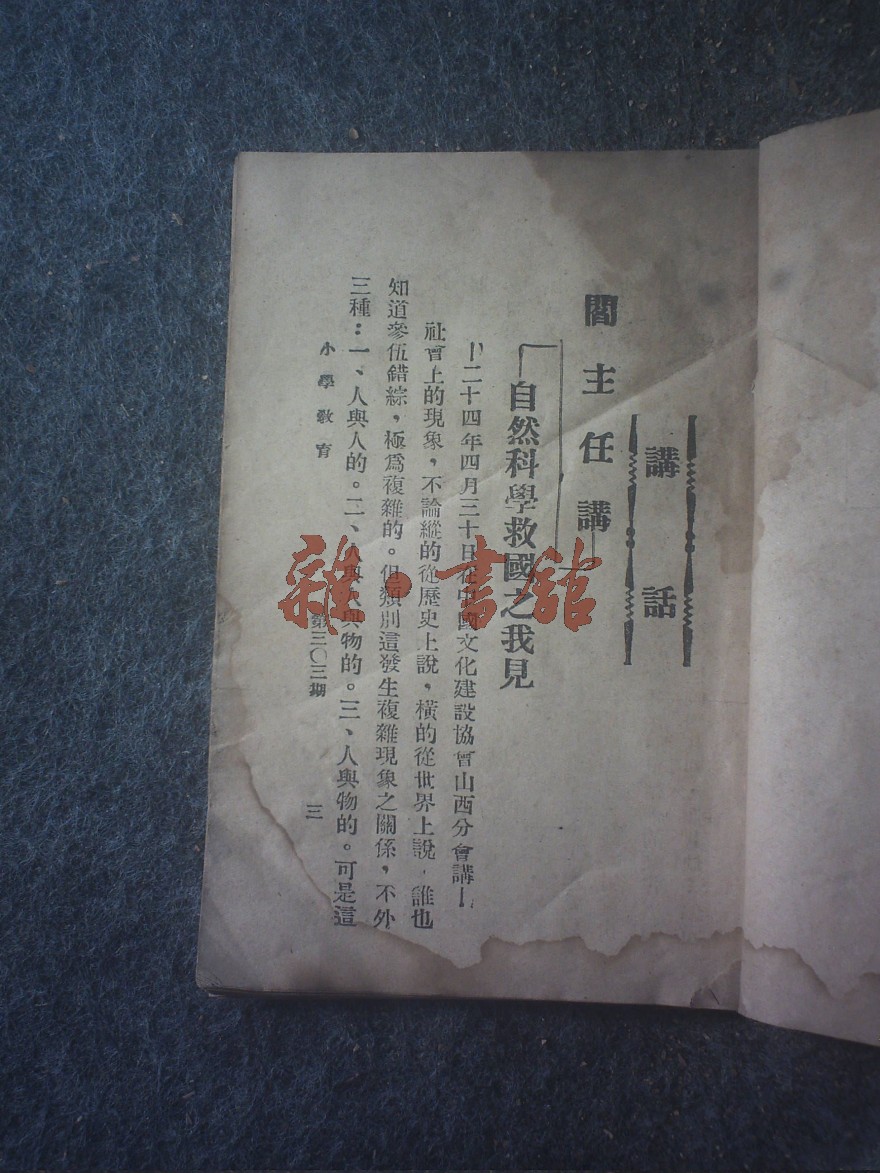 講話
閻主任講
自然科學救國之我見
二十四年四月三十日在中國文化建設協會山西分會講
社會上的現象，不論縱的從歷史上說，橫的從世界上說，誰也
知道參伍錯綜，極爲複雜的。但類別這發生複雜現象之關係，不外
三種：一、人與人的。二、人與人與物的。三、人與物的。可是這
小學教育 第三〇三期 三
雜·書館